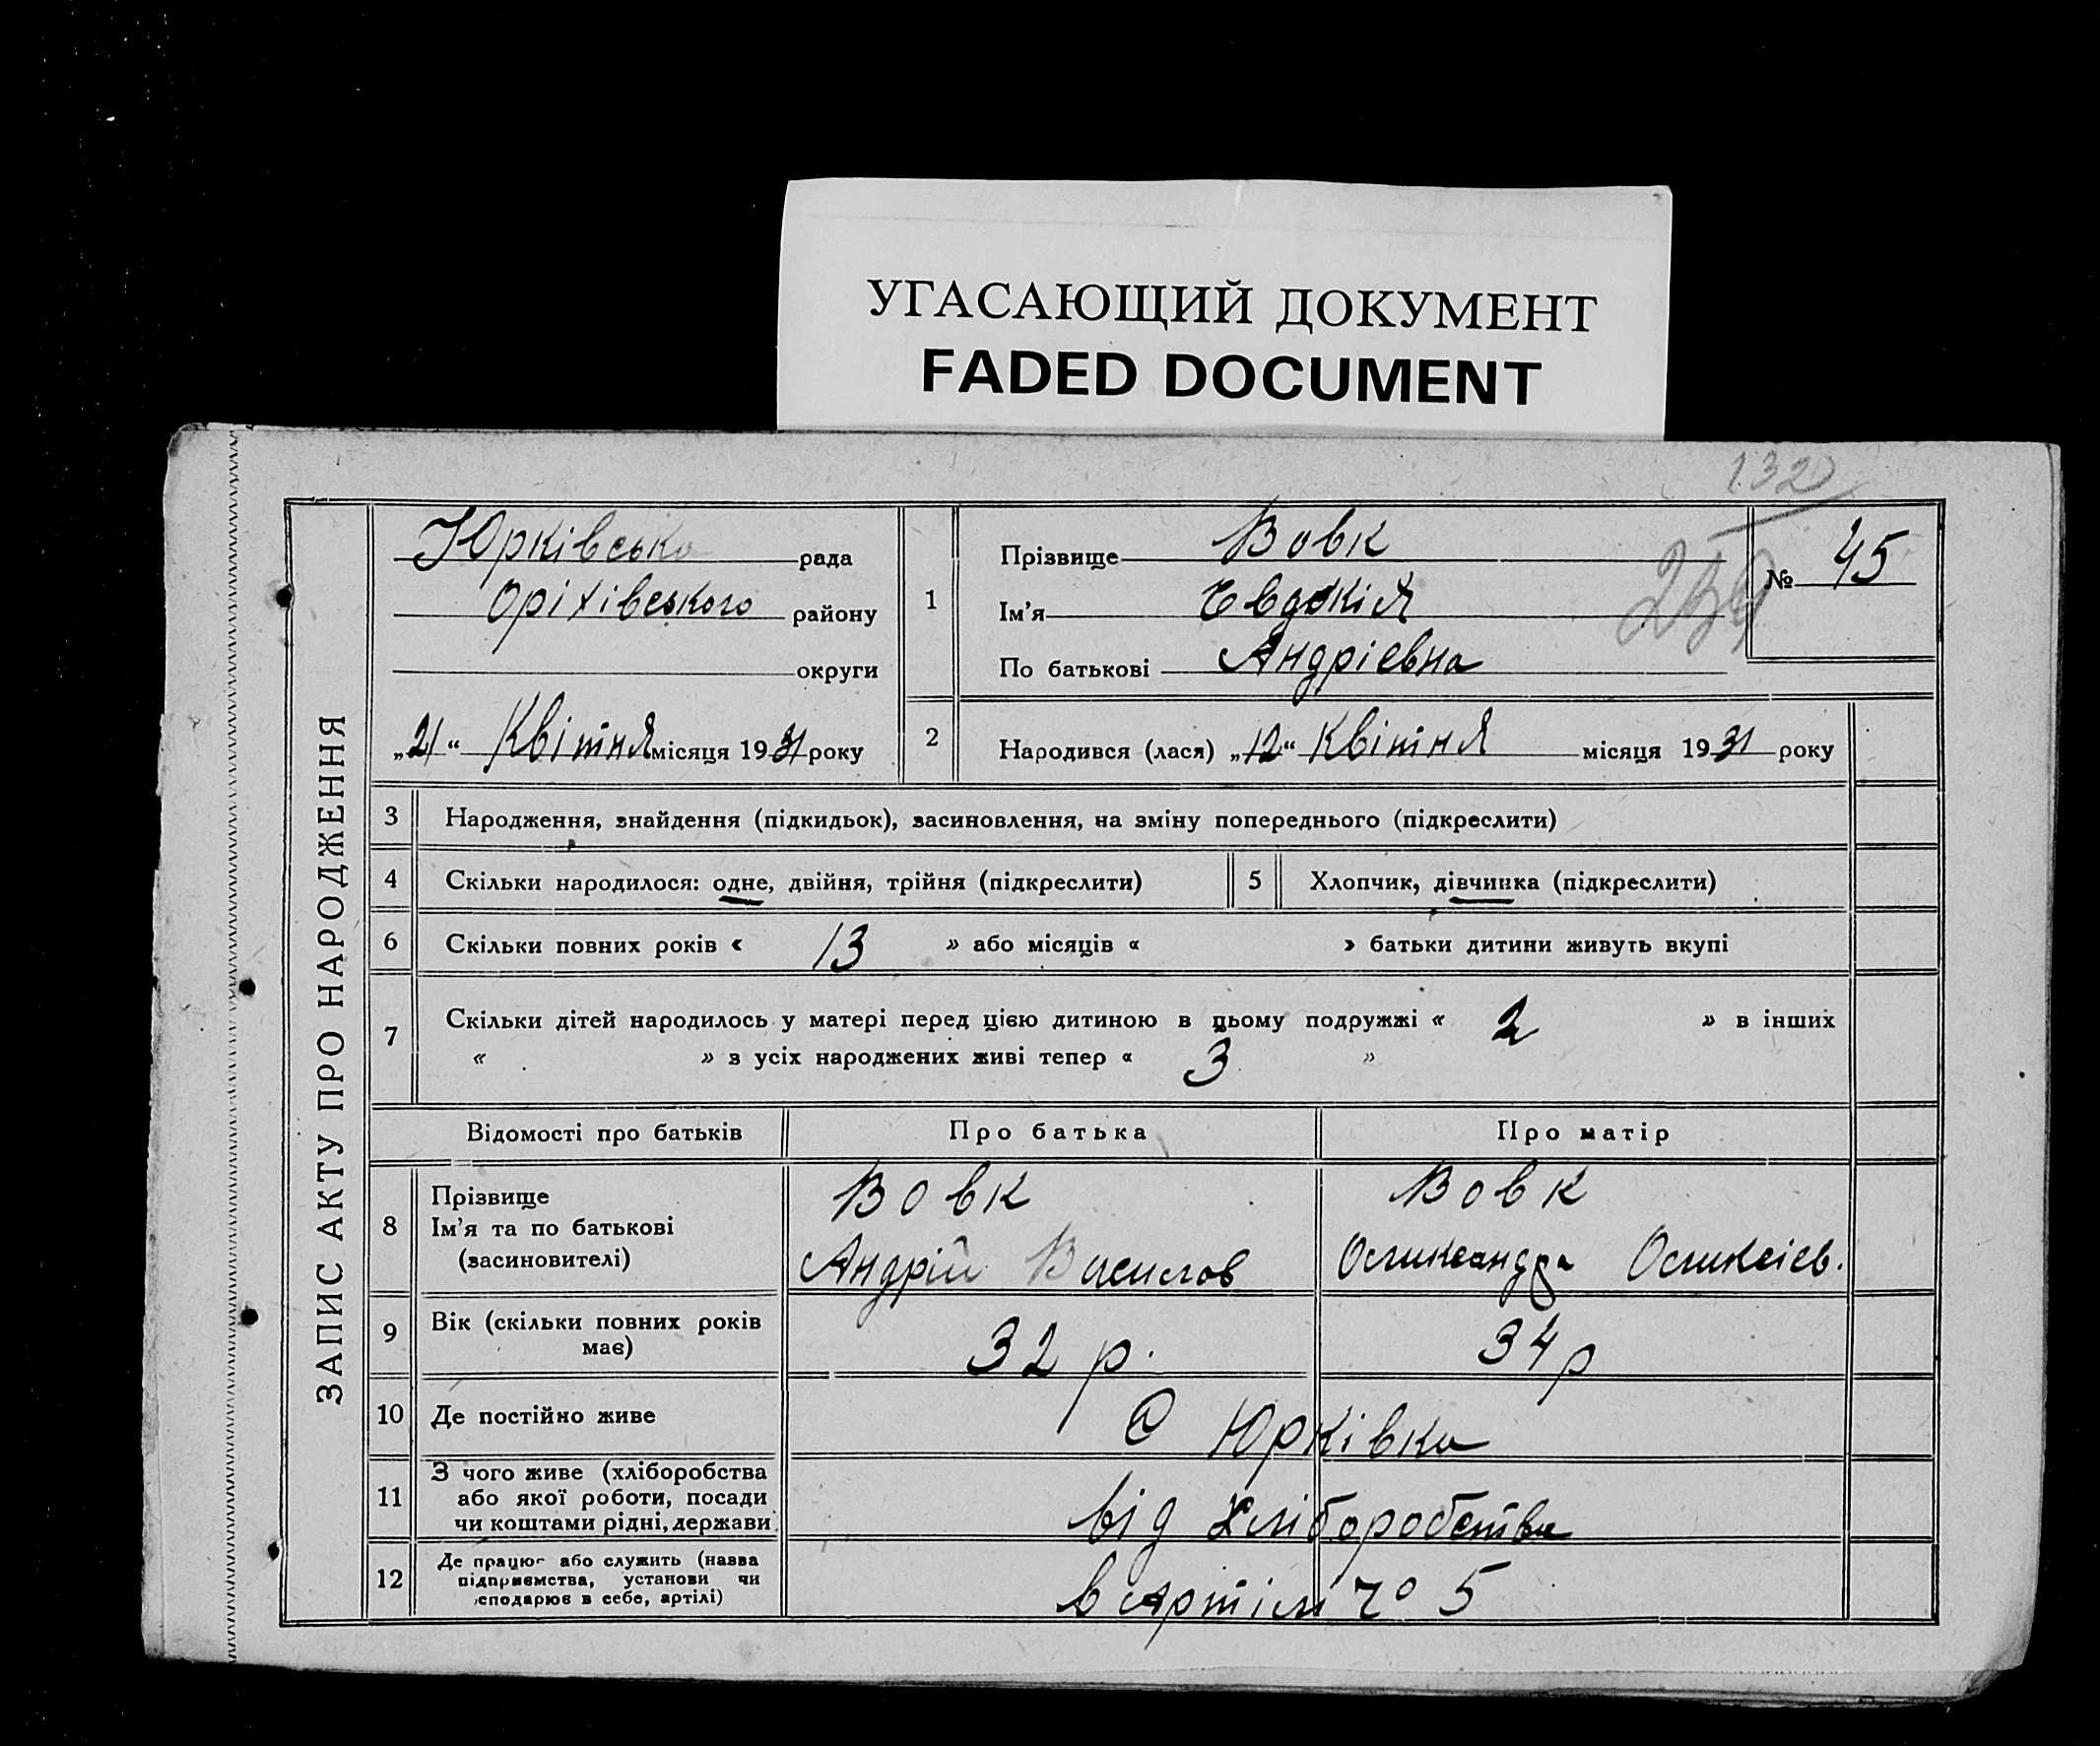 УГАСАЮЩИЙ ДОКУМЕНТ
FADED DOCUMENT
132
ЗАПИС АКТУ ПРО НАРОДЖЕННЯ
Юрківська рада
Оріхівського району
округи
„21“ Квітня місяця 1931 року
1
Прізвище Вовк
Ім'я Євдокія
По батькові Андріевна
№ 45
2
Народився (лася) „12“ Квітня місяця 1931 року
3 Народження, знайдення (підкидьок), засиновлення, на зміну попереднього (підкреслити)
4 Скільки народилося: одне, двійня, трійня (підкреслити)
5 Хлопчик, дівчинка (підкреслити)
6 Скільки повних років « 13 » або місяців « » батьки дитини живуть вкупі
7 Скільки дітей народилось у матері перед цією дитиною в цьому подружжі « 2 » в інших
« » з усіх народжених живі тепер « 3 »
Відомості про батьків Про батька Про матір
8
Прізвище Вовк Вовк
Ім'я та по батькові
(засиновителі) Андрій Василов Олександра Олексіев.
9 Вік (скільки повних років
має) 32 р. 34 р
10 Де постійно живе С Юрківка
11
З чого живе (хліборобства
або якої роботи, посади
чи коштами рідні, держави від хліборобства
12
Де працює або служить (назва
підприємства, установи чи
сподарює в себе, артілі) в Артіли № 5